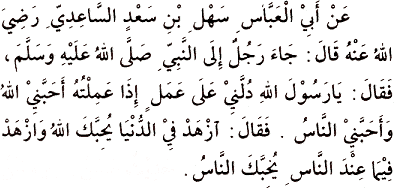 عَنْ أَبِي الْعَبَّاسِ سَهْلِ بْنِ سَعْدٍ السَّاعِدِيِّ رَضِيَ
اللهُ عَنْهُ قَالَ: جَاءَ رَجُلٌ إِلَى النَّبِيِّ صَلَّى اللهُ عَلَيْهِ وَسَلَّمَ،
فَقَالَ: يَارَسُوْلَ اللهِ دُلَّنِيْ عَلَى عَمَلٍ إِذَا عَمِلْتُهُ أَحَبَّنِيَ اللهُ
وَأَحَبَّنِيَ النَّاسُ. فَقَالَ: اَزْهَدْ فِيْ الدُّنْيَا يُحِبَّكَ اللهُ وَازْهَدْ
فِيْمَا عِنْدَ النَّاسِ يُحِبَّكَ النَّاسُ.